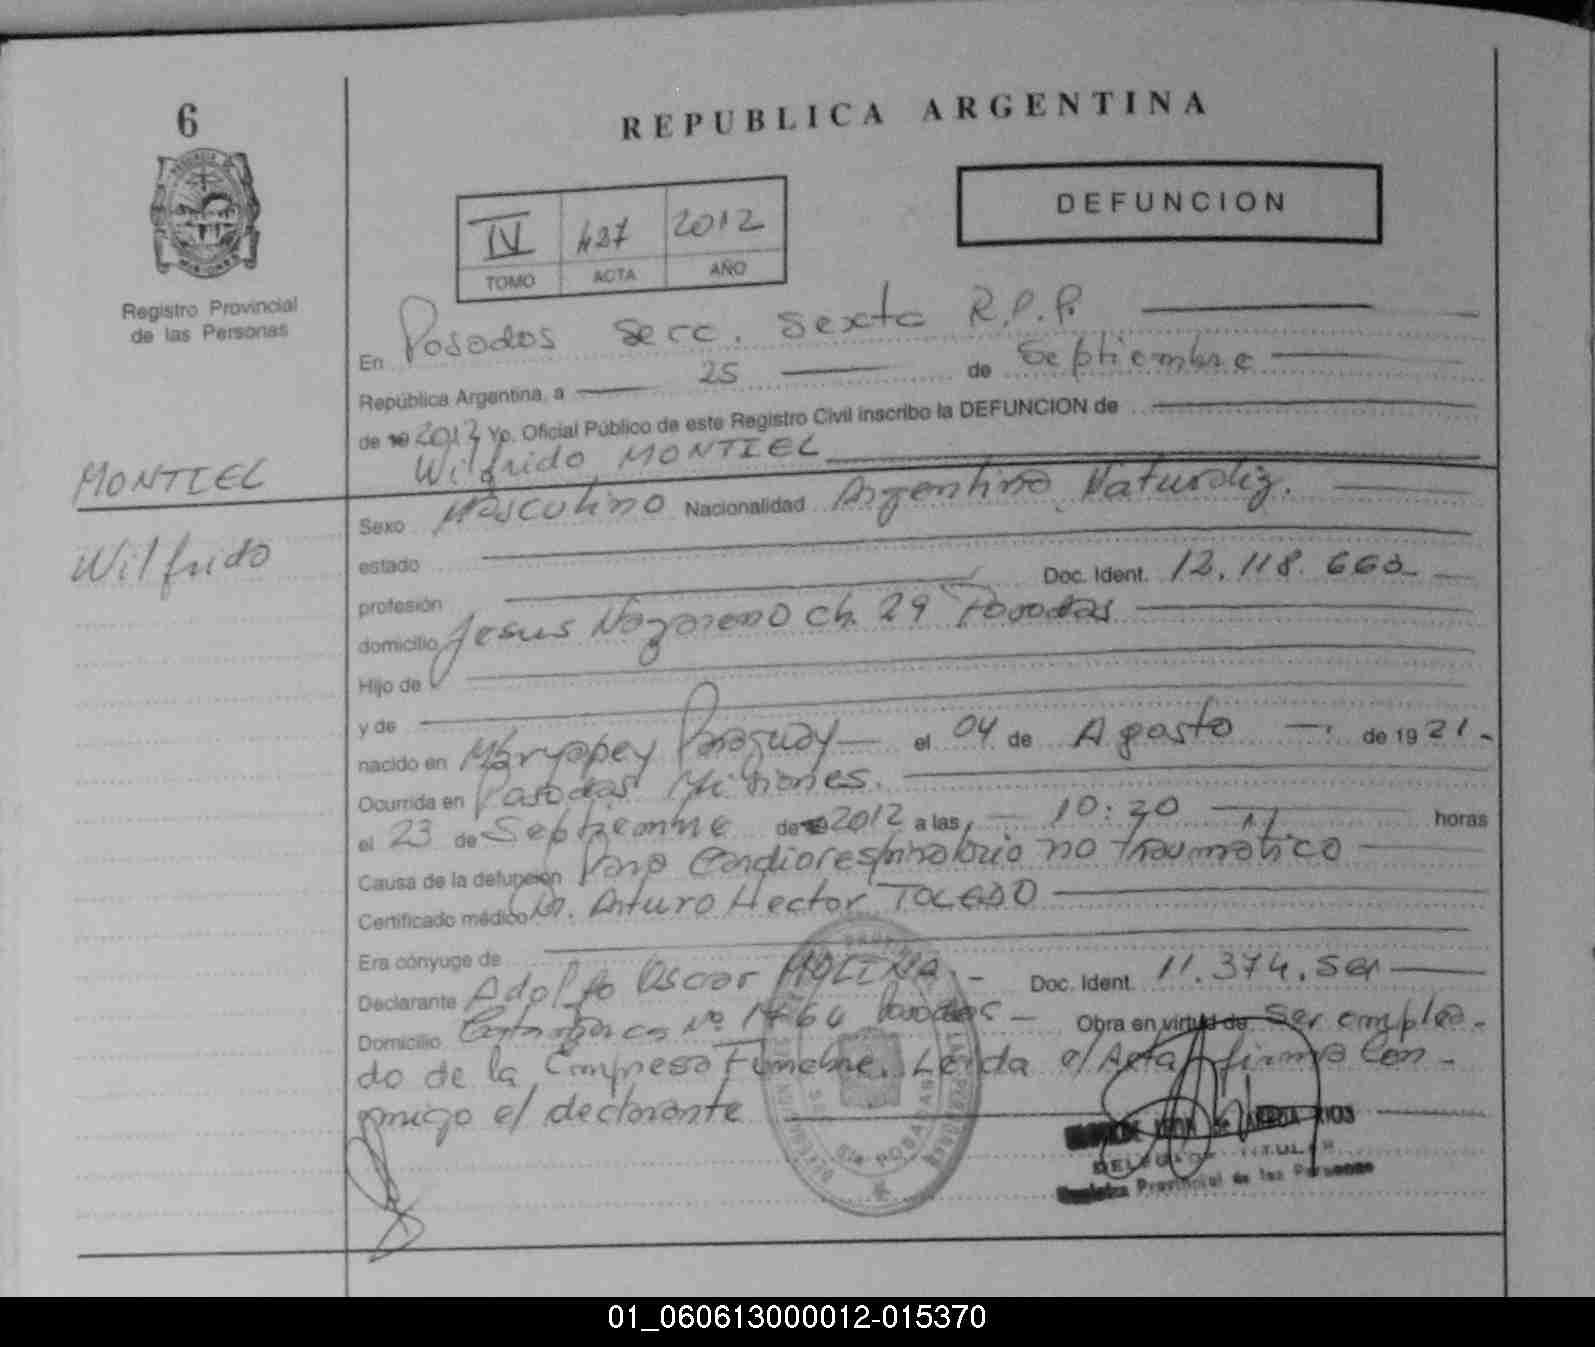 6
REPUBLICA ARGENTINA
DEFUNCION
IV 427 2012
TOMO ACTA AÑO
Registro Provincial
de las Personas
En Posadas Secc. Sexta R.P.P.
República Argentina, a 25 de Septiembre
de 19 2012 Yo, Oficial Público de este Registro Civil inscribo la DEFUNCION de
Wilfrido MONTIEL
MONTIEL
Wilfrido
Sexo Masculino Nacionalidad Argentino Naturaliz.
estado
profesión Doc. Ident. 12.118.663
domicilio Jesus Nazareno Ch. 29 Posadas
Hijo de
y de
nacido en Paraguay el 04 de Agosto de 1921.
Ocurrida en Posadas Misiones.
el 23 de Septiembre de 19 2012 a las 10:20 horas
Causa de la defunción Paro Cardiorespiratorio no traumático
Certificado médico Dr. Arturo Hector TOLEDO
Era cónyuge de
Declarante Adolfo Oscar MOLINA. Doc. Ident. 11.374.
Domicilio Catamarca Nº Posadas Obra en virtud de Ser emplea-
do de la Empresa Fúnebre. Leída el Acta firma con-
migo el declarante
RIOS
DELEGADO TITULAR
Registro Provincial de las Personas
01_060613000012-015370